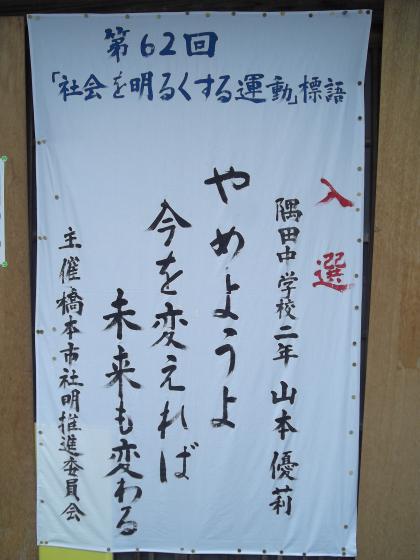 第62回
「社会を明るくする運動」標語
入選
隅田中学校二年 山本優莉
やめようよ
今を変えれば
未来も変わる
主催橋本市社明推進委員会